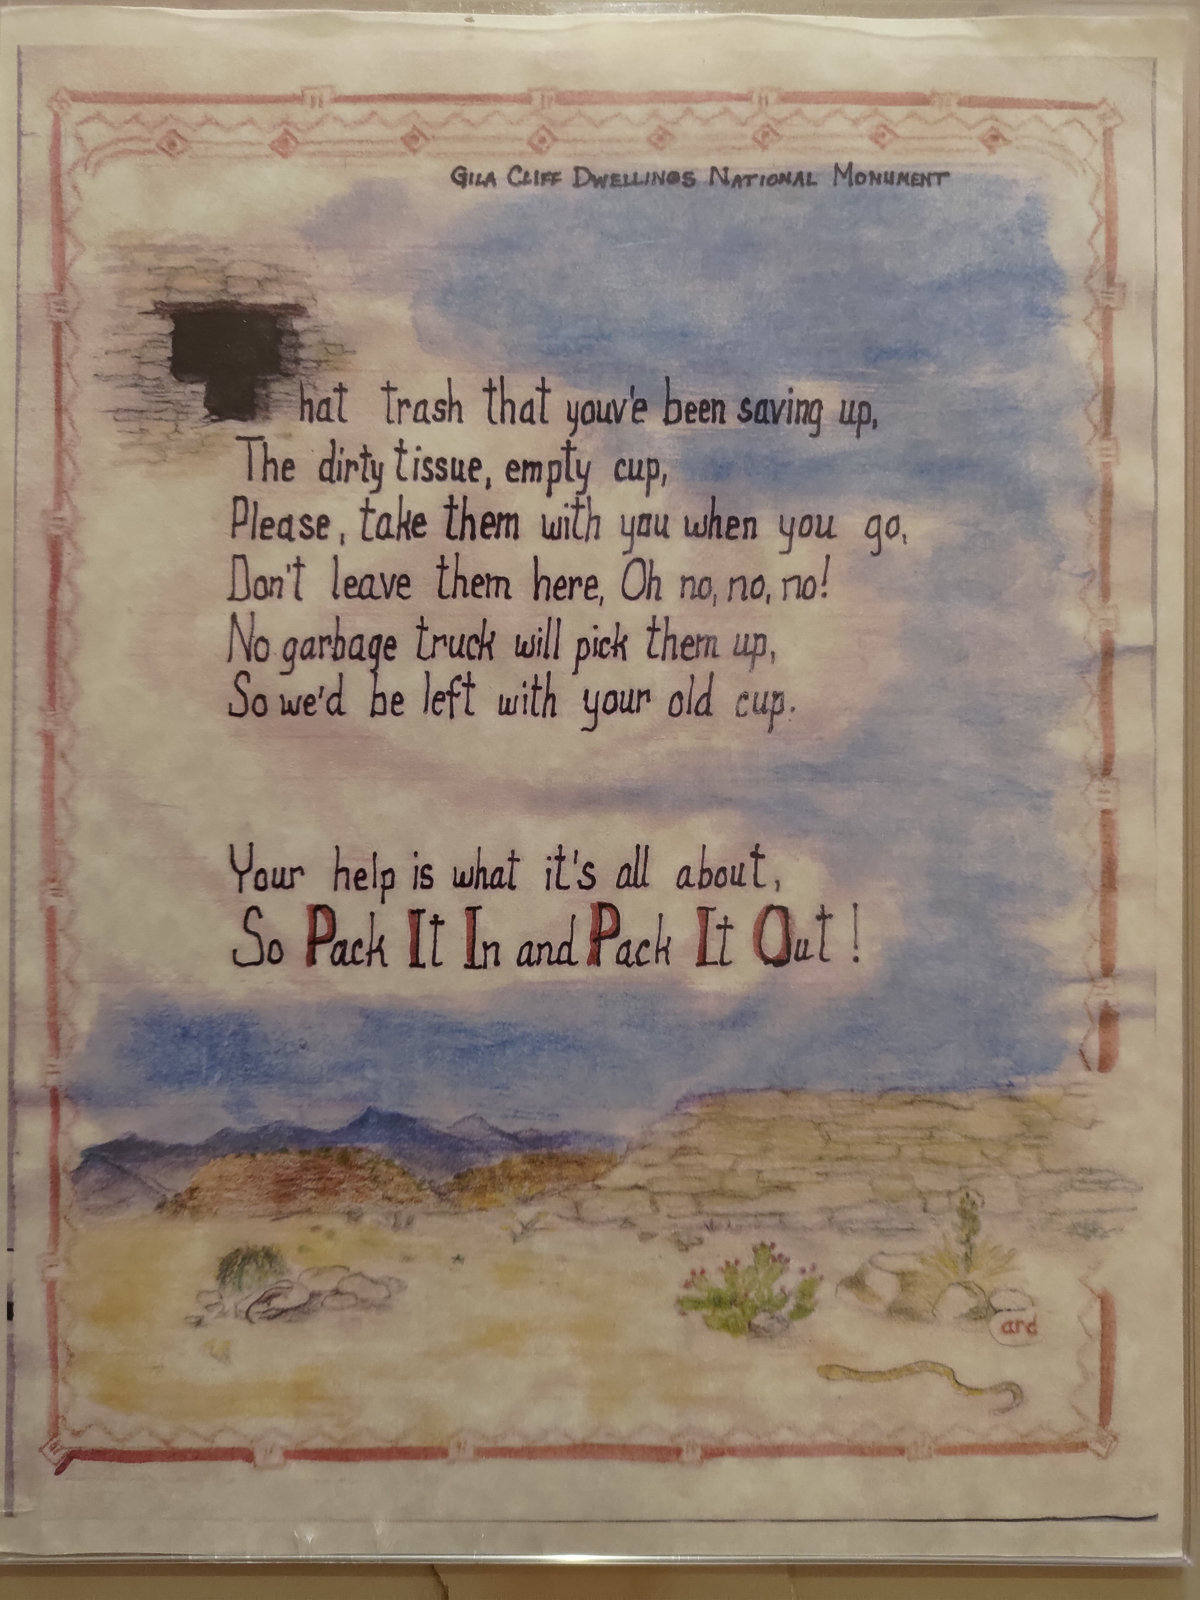 GILA CLIFF DWELLINGS NATIONAL MONUMENT
That trash that youv'e been saving up,
The dirty tissue, empty cup,
Please, take them with you when you go,
Don't leave them here, Oh no, no, no!
No garbage truck will pick them up,
So we'd be left with your old cup.
Your help is what it's all about,
So Pack It In and Pack It Out!
ard